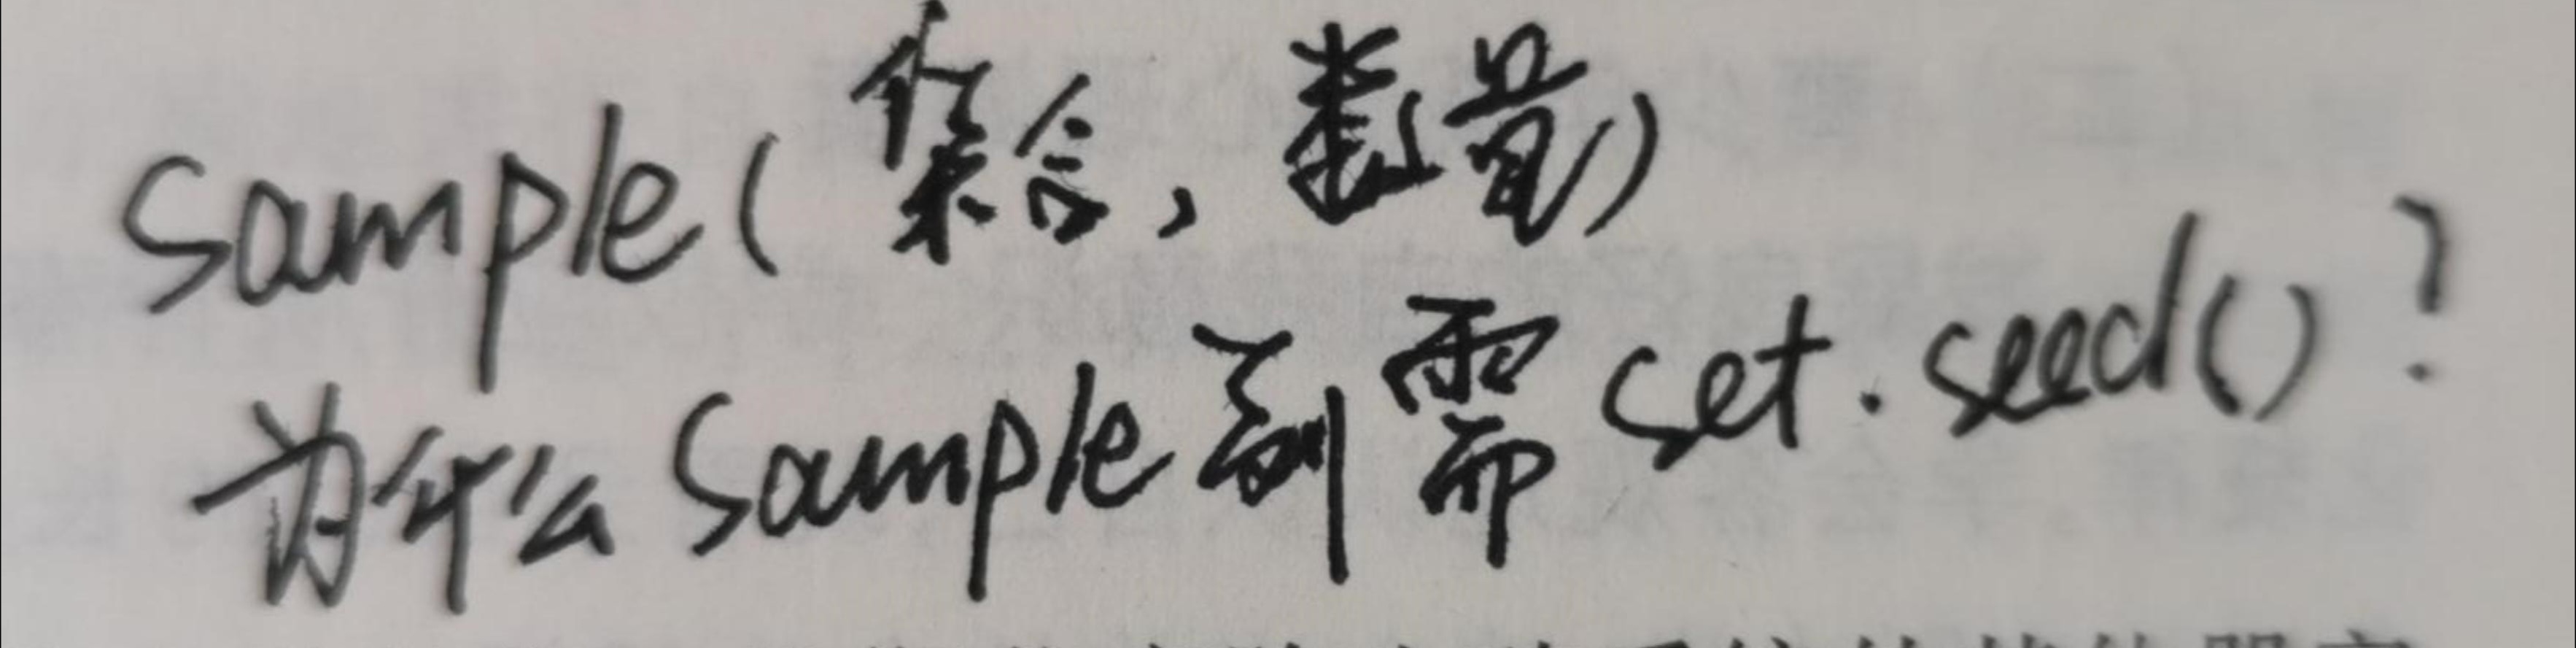 sample(集合,数量)
为什么sample前需set.seed()?